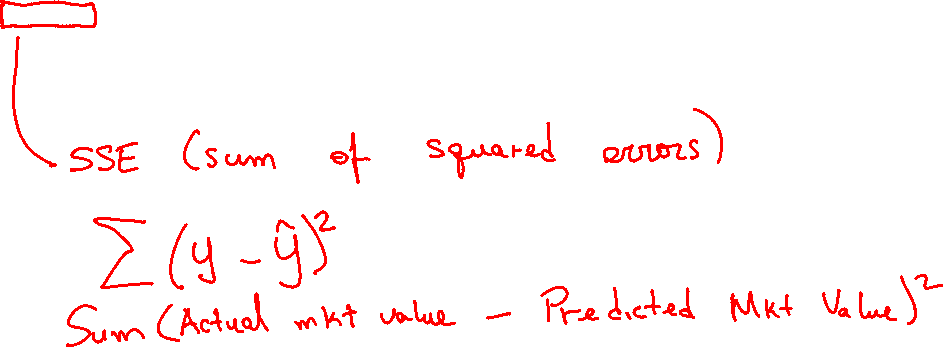 SSE (sum of squared errors)
∑(y - ŷ)²
Sum (Actual mkt value - Predicted Mkt Value)²